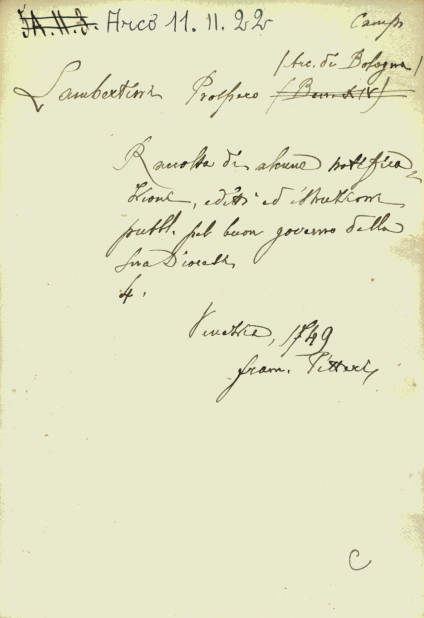 5A.II.3. Arco 11.11.22 Camps
(Arc. di Bologna)
Lambertini Prospero (Ben. XIV)
Raccolta di alcune notifica=
zioni, editti ed istruzioni
pubbl. pel buon governo della
sua Diocesi
4.
Venezia, 1749
fran. Pitteri
C